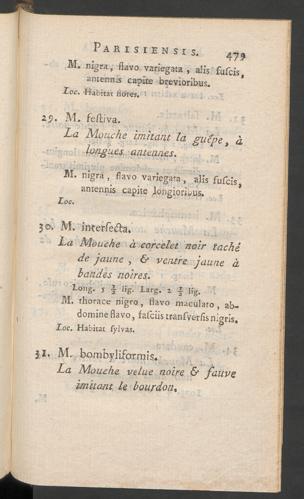 PARISIENSIS. 479
M. nigra, flavo variegata, alis fuscis,
antennis capite brevioribus.
Loc. Habitat flores.
29. M. festiva.
La Mouche imitant la guêpe, à
longues antennes.
M. nigra, flavo variegata, alis fuscis,
antennis capite longioribus.
Loc.
30. M. intersecta.
La Mouche à corcelet noir taché
de jaune, & ventre jaune à
bandes noires.
Long. 5 ½ lig. Larg. 2 ½ lig.
M. thorace nigro, flavo maculato, ab-
domine flavo, fasciis transversis nigris.
Loc. Habitat sylvas.
31. M. bombyliformis.
La Mouche velue noire & fauve
imitant le bourdon.